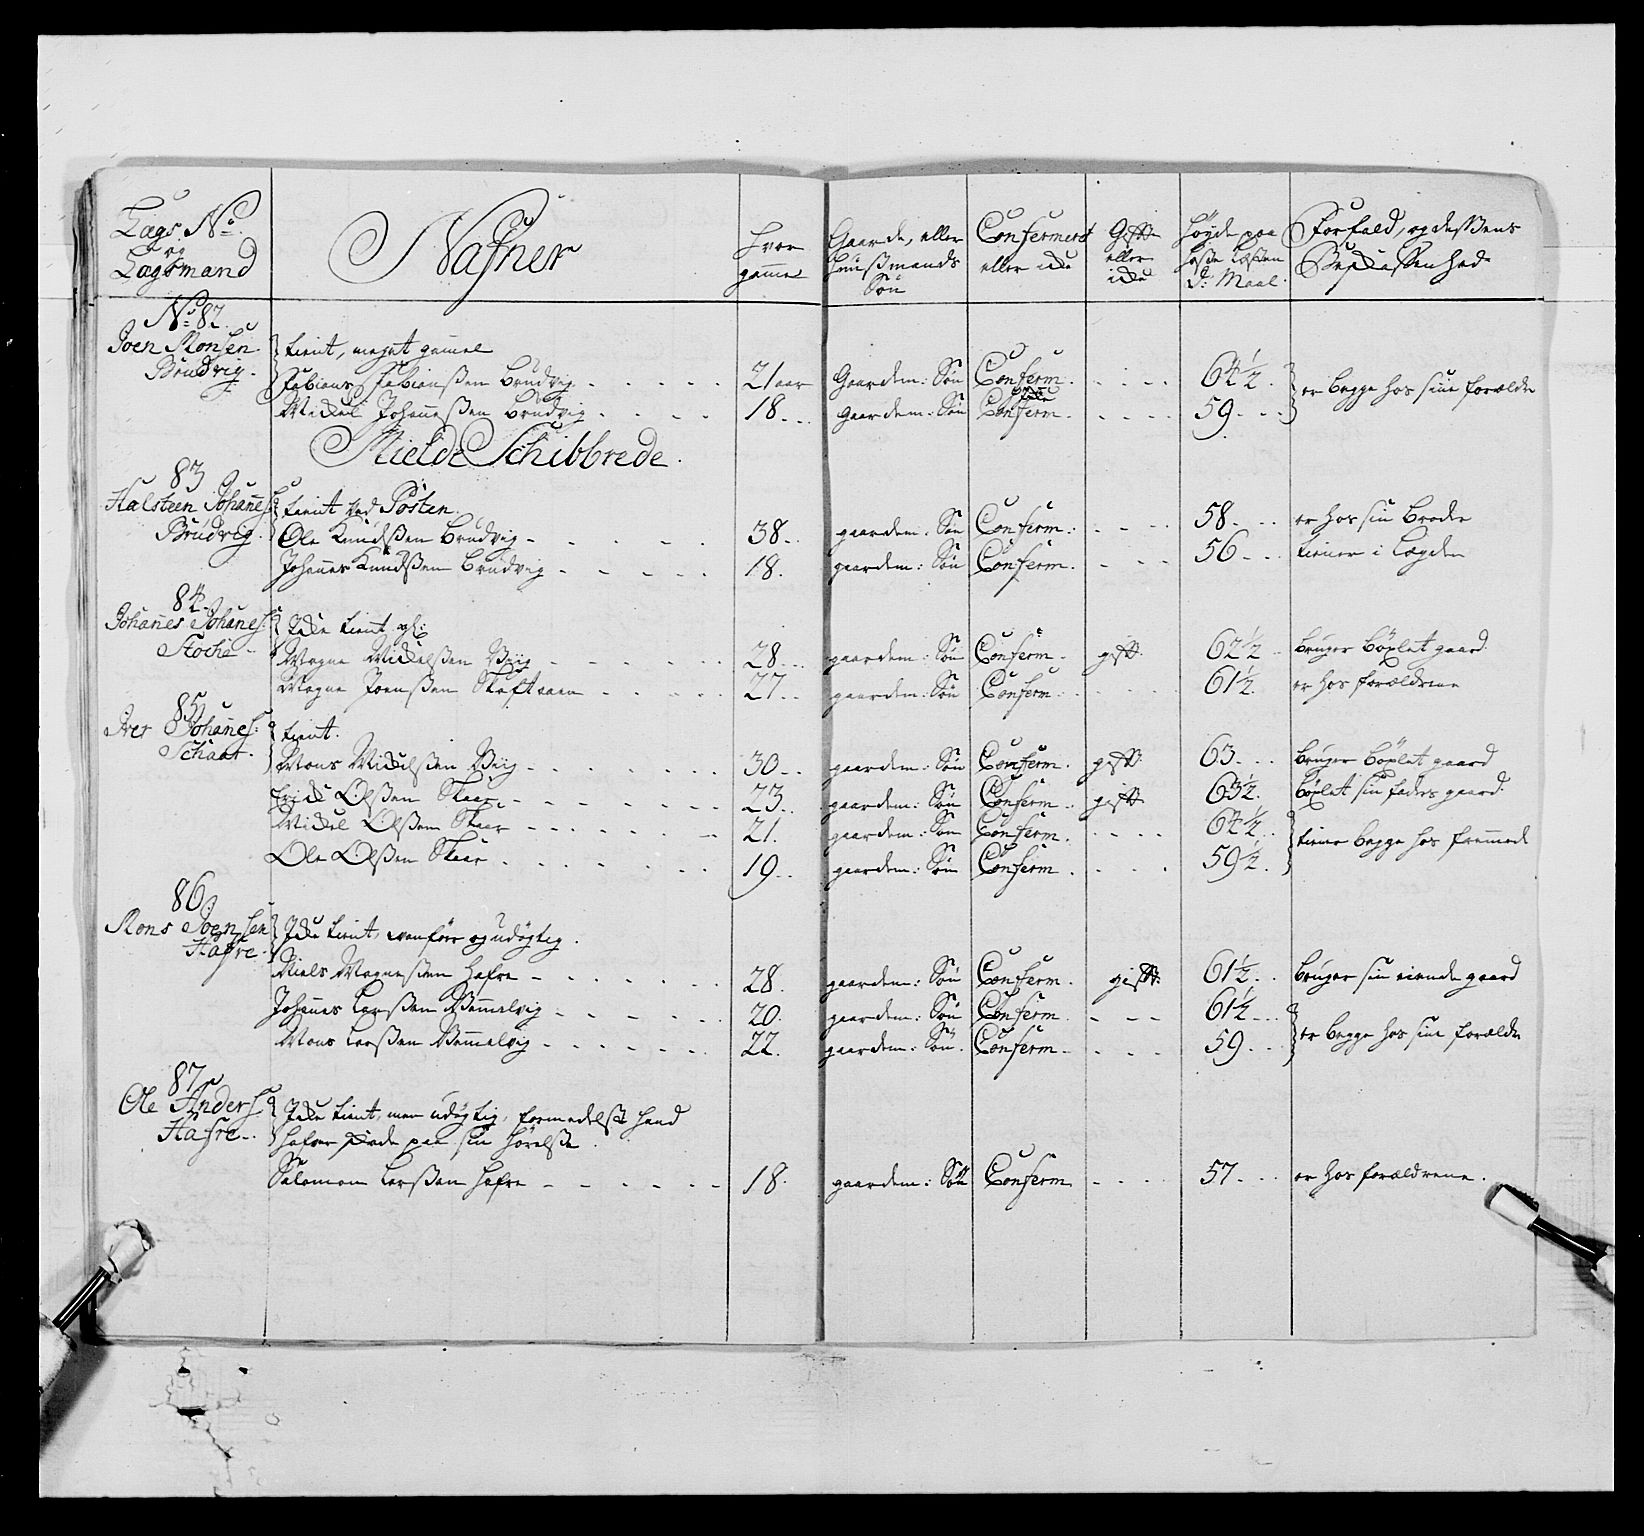 Lægs No: og Lægsmand | Nafner | hvor gammel | Gaards, eller Huusmands Søn | Confermert eller icke | Gift eller icke | Høyde paa
No: 82.
Joen Monsen Brudvig. | tient, meget gammel
Fabians Fabiansßen Brudvig | 21 aar | Gaardem: Søn | Conferm. | 64½. | er begge hos sine forældre
Mickel Johannesßen Brudvig | 18 | Gaardem: Søn | Conferm. | 59.
Mielde Schibbrede.
83
Halsteen Johannes: Brudvig. | tient ved Posten.
Ole Knudsßen Brudvig | 38 | gaardem: Søn | Conferm. | 58. | er hos sin broder
Johannes Knudsßen Brudvig | 18. | gaardem: Søn | Conferm. | 56 | tiener i Lægden
84.
Johanes Johanes: Stoche | Icke tient
Magne Mickelsßen Viig | 28 | gaardem: Søn | Conferm | gift | 62½ | bruger böxlet gaard.
Magne Joensßen | 27 | gaardem: Søn | Conferm. | 61½. | er hos forældrene
85
Iver Johanes: Schaar. | tient.
Mons Mickelsßen Viig | 30 | gaardem: Søn | Conferm. | gift | 63. | bruger böxlet gaard
Erick Olsßen Skaar | 23. | gaardem: Søn | Conferm. | gift | 63½. | böxlet sin faders gaard.
Mickel Olsßen Skaar | 21. | gaardem: Søn | Conferm. | 64½. | tiener begge hos fremmede
Ole Olsßen Skaar | 19. | gaardem: Søn | Conferm. | 59½.
86.
Mons Joensen Hafre. | Icke tient, vanför og udögtig.
Niels Magnesßen Hafre | 28. | gaardem: Søn | Conferm. | gift. | 61½. | bruger sin eiende gaard
Johannes Larsßen Vemmelvig | 20. | gaardem: Søn | Conferm. | 61½ | er begge hos sine forældre
Mons Larsßen Vemmelvig | 22. | gaardem: Søn. | Conferm. | 59
87
Ole Anders: Hafre. | Icke tient, men udögtig, formedelst hand
hafver skade paa sin hörelse.
Salamon Larsßen Hafre | 18. | gaardem: Søn | Conferm | 57. | er hos forældrene.